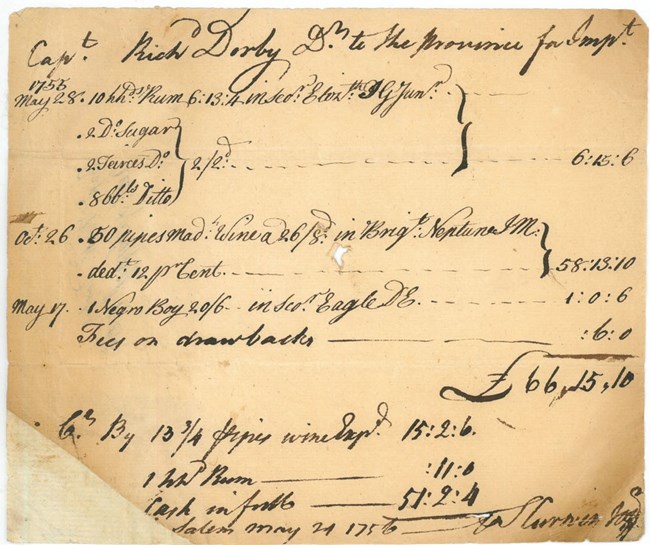 Capt. Richd Derby Dr to the Province for Impt.
1755
May 28. 10 hhds Rum 6:13:4 in Scor. Elizth JG Junr.
. 2 Do Sugar
. 2 Teirces Do } 2/2d 6:15:6
. 8 bbls Ditto
Oct. 26 . 50 pipes Mad. Wine a 26/8d in Brigt. Neptune JM:
. dedt. 12 pr Cent. 58:13:10
May 17. 1 Negro Boy 20/6 in Scor. Eagle DE. 1:0:6
Fees on drawbacks :6:0
£ 66,15,10
Cr. By 13 3/4 pipes wine Expd. 15:2:6.
1 hhd Rum :11:0
Cash in full 51:2:4
Salem May 21 1756 Curwen